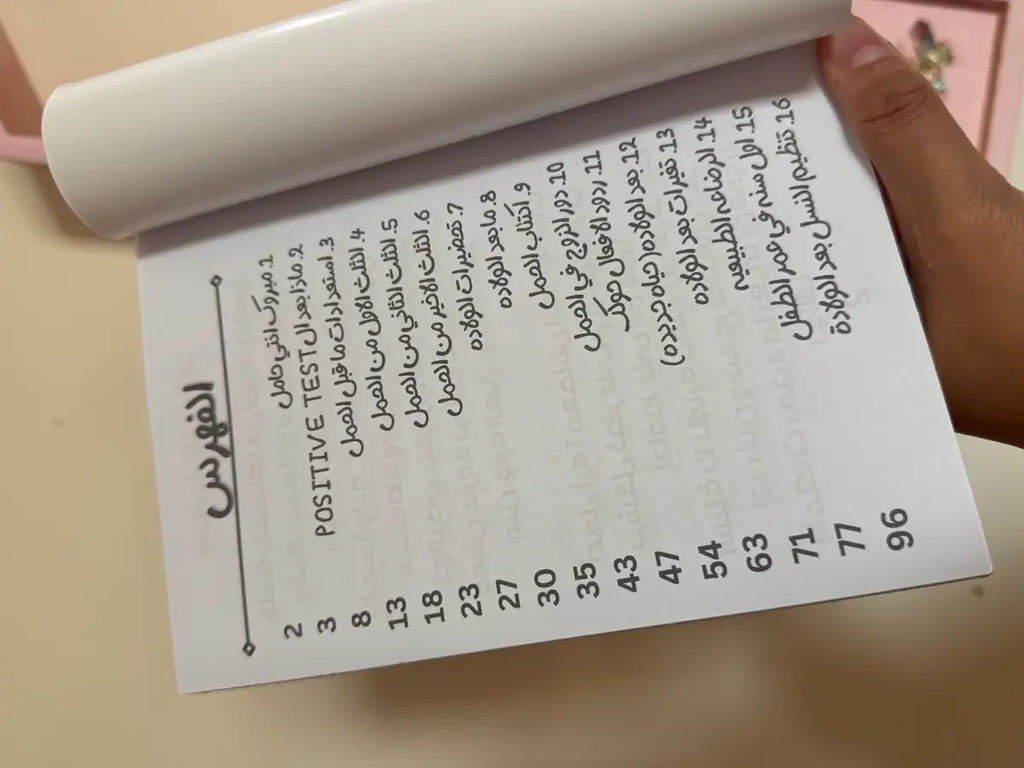 الفهرس
1. مبروك انتي حامل 2
2. ماذا بعد ال POSITIVE TEST 3
3. استعدادات ما قبل الحمل 8
4. الثلث الاول من الحمل 13
5. الثلث الثاني من الحمل 18
6. الثلث الاخير من الحمل 23
7. تحضيرات الولاده 27
8. ما بعد الولاده 30
9. اكتئاب الحمل 35
10. دور الزوج في الحمل 43
11. ردود الافعال حولك 47
12. بعد الولاده (حياه جديده) 54
13. تغيرات بعد الولاده 63
14. الرضاعه الطبيعيه 71
15. اول سنه في عمر الطفل 77
16. تنظيم النسل بعد الولادة 96